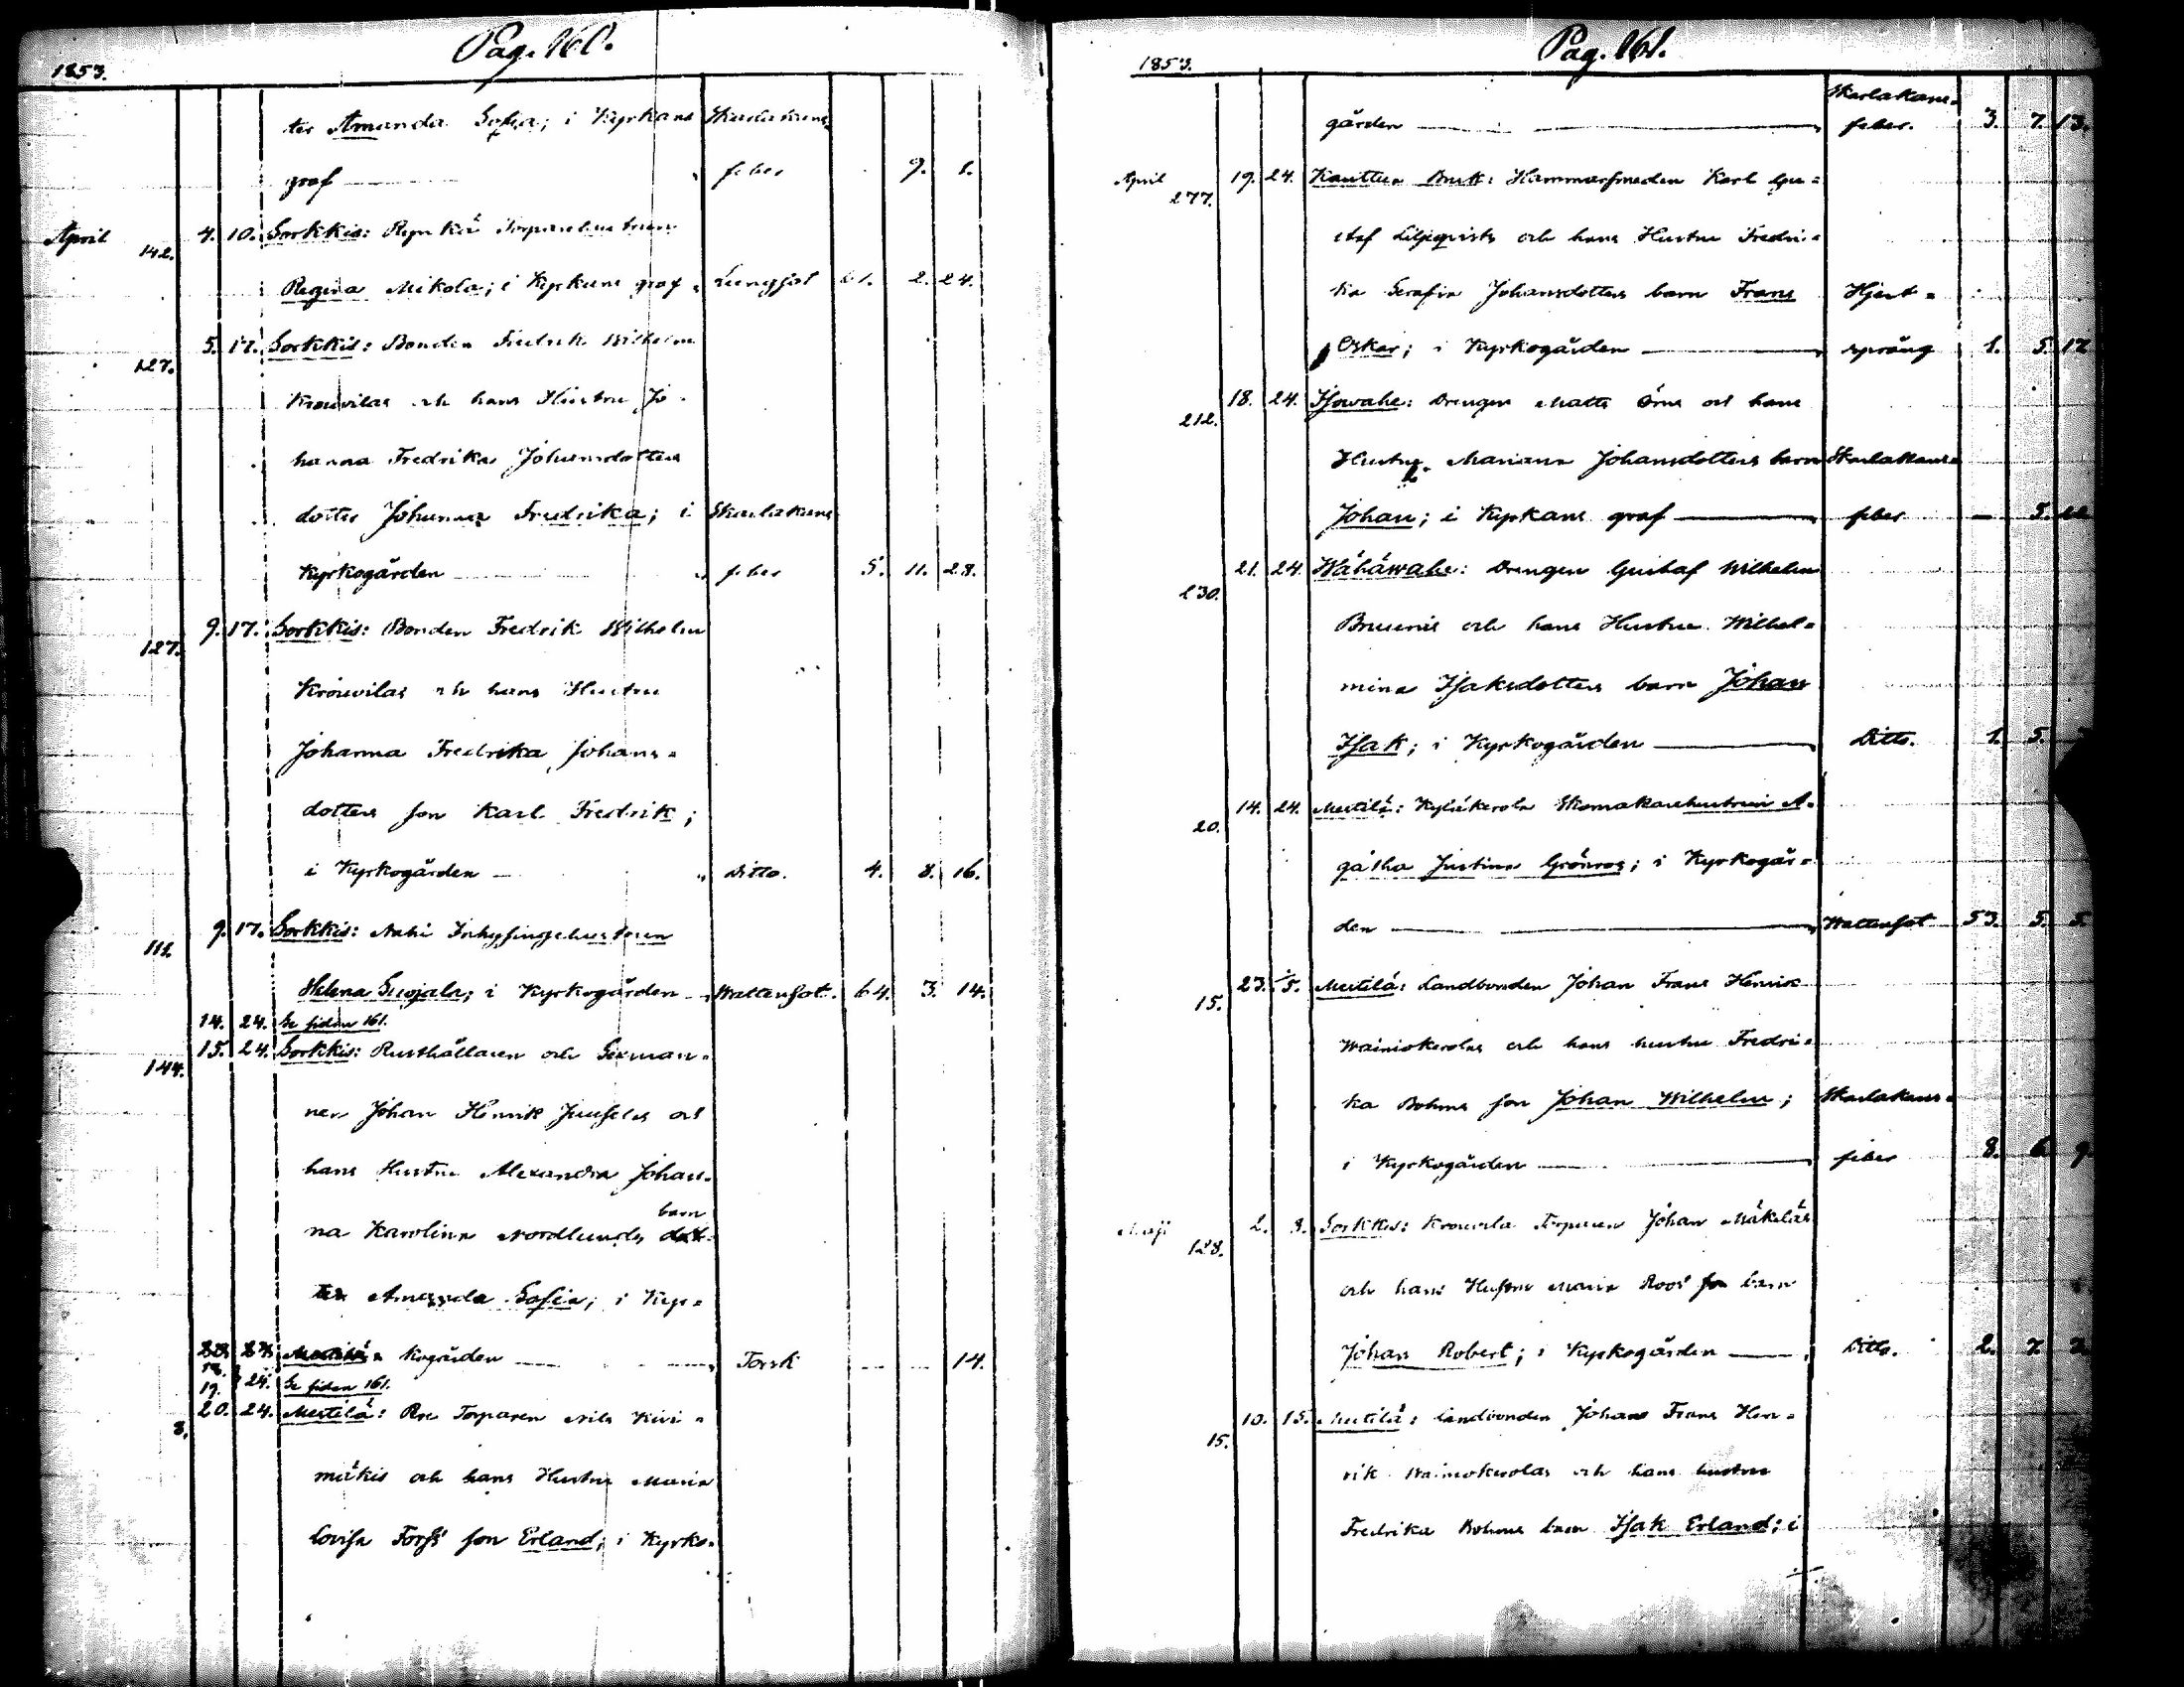 Pag. 160.
1853.
ter Amanda Sofia; i Kyrkans Skarlakans
graf feber 9. 1.
April 142. 4. 10. Sorkkis: Torparehustrun
Regina Mikola; i Kyrkans graf Lungsot 61. 2. 24.
127. 5. 17. Sorkkis: Bonden Fredrik Wilhelm
Krouvilas och hans Hustru Jo-
hanna Fredrika Johansdotters
dotter Johanna Fredrika; i Skarlakans
Kyrkogården feber 5. 11. 28.
127. 9. 17. Sorkkis: Bonden Fredrik Wilhelm
Krouvilas och hans Hustru
Johanna Fredrika Johans=
dotters son Karl Fredrik;
i Kyrkogården Ditto. 4. 8. 16.
111. 9. 17. Sorkkis: Inhysingehustrun
Helena; i Kyrkogården Wattensot. 64. 3. 14.
14. 24. Se sidan 161.
144. 15. 24. Sorkkis: Rusthållaren och Sexman=
nen Johan Henrik Juuselas och
hans Hustru Alexandra Johan=
barn
na Karolina Nordlunds dot=
ter Amanda Sofia; i Kyr=
kogården Torsk 14.
18. 19. 24. Se sidan 161.
8. 20. 24. Mestilä: Torparen Nils Kivi=
mäkis och hans Hustru Maria
Lovisa Forss' son Erland; i Kyrko=
Pag. 161.
1853.
Skarlakans=
gården feber. 3. 7. 13.
April 277. 19. 24. Kauttua Bruk: Hammarsmeden Karl Gu=
staf Liljeqvists och hans Hustru Fredri=
ka Serafia Johansdotters barn Frans Hjert=
Oskar; i Kyrkogården språng 1. 5. 12
212. 18. 24. Isowahe: Drengen Matts Örns och hans
Hustru Mariana Johansdotters barn Skarlakans=
Johan; i Kyrkans graf feber — 5. 22
230. 21. 24. Wähäwahe: Drengen Gustaf Wilhelm
och hans Hustru Wilhel=
mina Isaksdotters barn Johan
Isak; i Kyrkogården Ditto. 1. 5.
20. 14. 24. Mestilä: Kyläkerola Skomakarehustrun A=
gatha Justina Grönroos; i Kyrkogår=
den Wattensot 53. 5. 5.
15. 23. 1/5. Mestilä: Landbonden Johan Frans Henrik
Wainiokerolas och hans hustru Fredri=
ka Bohms son Johan Wilhelm; Skarlakans=
i Kyrkogården feber 8. 6. 9
Maji 128. 2. 8. Sorkkis: Krouvila Torparen Johan Mäkeläs
och hans Hustru Maria Roos' barn
Johan Robert; i Kyrkogården Ditto. 2. 7. 2
15. 10. 15. Mestilä: Landbonden Johan Frans Hen=
rik Wainiokerolas och hans hustru
Fredrika Bohms barn Isak Erland; i